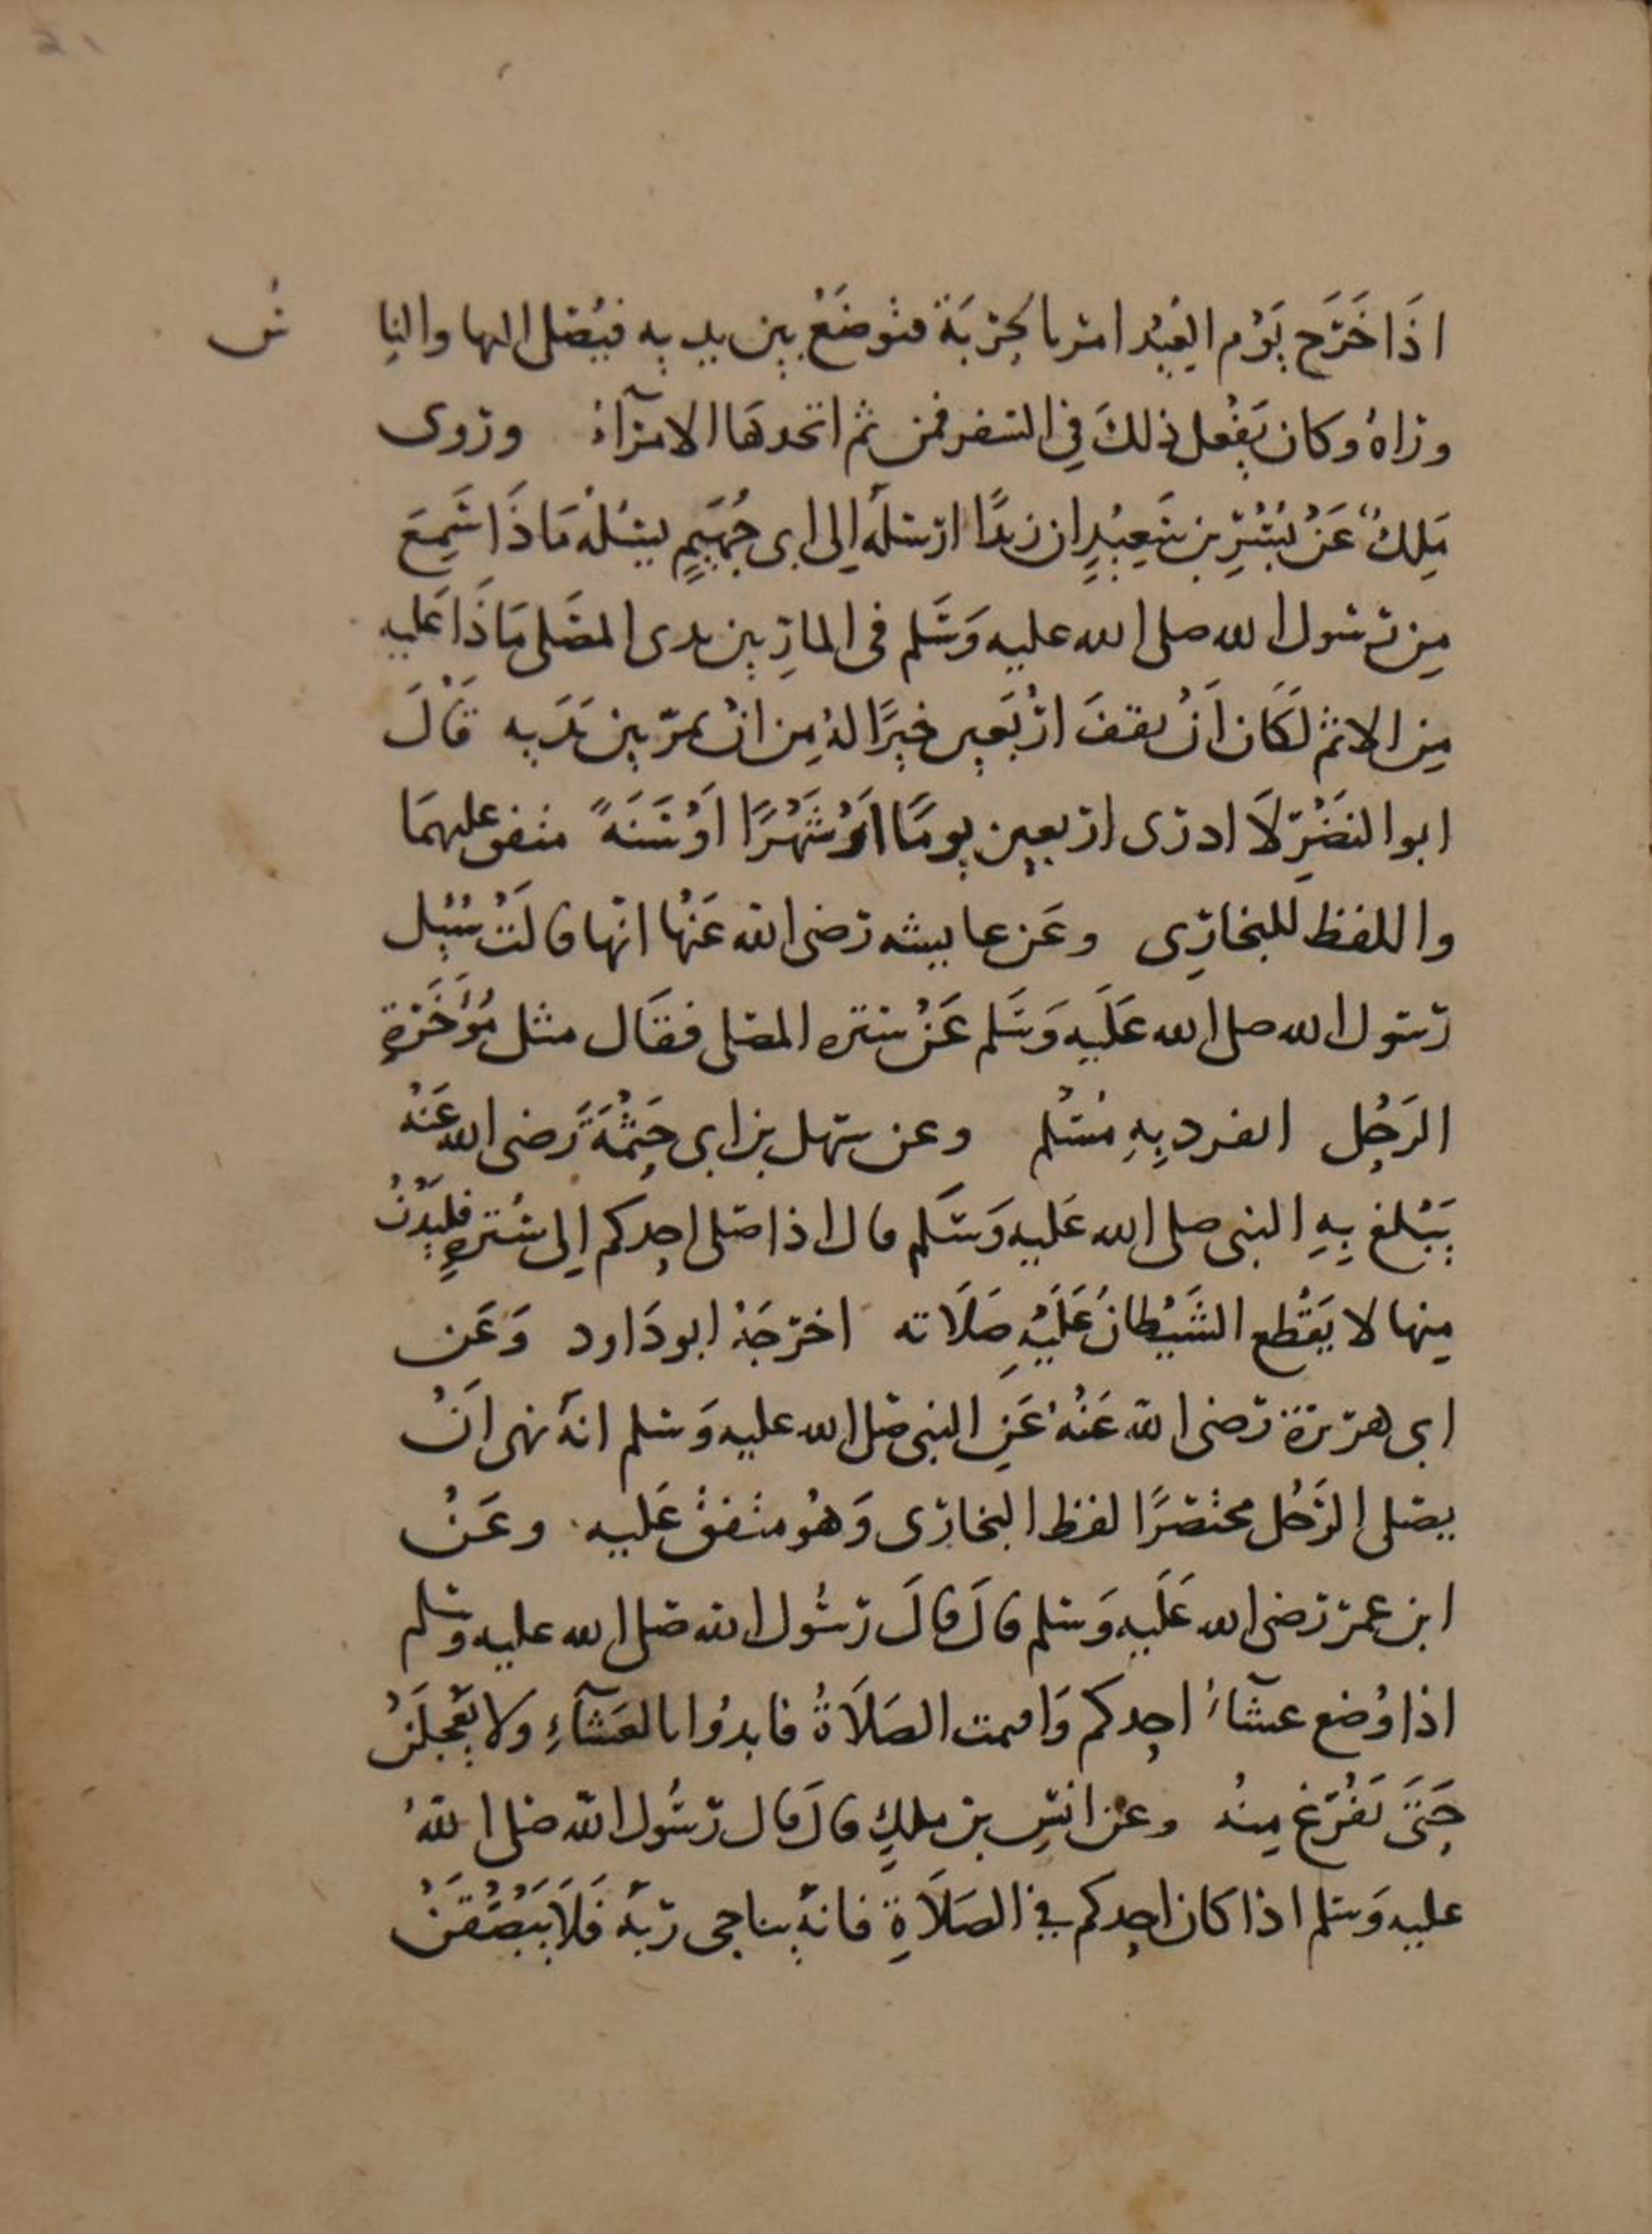 اذَا خَرَج يَوْم العِيْد امر بالحِرْبَة فتوضَعُ بين يديه فيُصَلى اليها والنا س
وراهُ وكان يَفْعل ذلكَ فِي السَفر فمن ثم اتخدهَا الامرآءُ وروى
مَلِكٌ عَنْ بُسْرِ بن سَعِيْدٍ ان زيدًا ارْسَلهُ اِلى ابى جُهَيمٍ يسْئلهُ مَا ذَا سَمِعَ
مِن رسول الله صلى الله عليه وَسَلم فى المارِ بين يدى المصَلى مَا ذَا عَليه
مِن الاثم لكَان اَنْ يقفَ ارْبَعين خيرًا لهُ مِن انْ يمرّ بين يَدَيه قَالَ
ابو النضْرِ لَا ادرى اربعين يومًا اَوْ شَهْرًا اَوْ سَنَةً متفق عليهمَا
واللفظ للبخارِى وعَن عايشه رضى الله عَنْها انها قالَتْ سُئِل
رسول الله صلى الله عَلَيه وَسَلم عَنْ ستره المصلى فقَال مثل مُؤَخَرَةِ
الرَحِل انفرد بِهِ مُسْلم وعن سهل بن ابى حَثْمَةَ رضى الله عَنْهُ
يَبْلغ بِهِ النبى صلى الله عَليه وَسَلم قال اذا صَلى احدكم اِلى سُترةٍ فليَدْنُ
مِنها لا يَقْطع الشَيْطانُ عَلَيْهِ صَلَاته اخرَجَهُ ابو دَاود وَعَن
ابى هريرة رضى الله عَنْهُ عَنِ النبى صَلى الله عليه وَسَلم انهُ نهى اَنْ
يصَلى الرَجُل مختصرًا لفظ البخارِى وَهُو متفقٌ عَليه وعَنْ
ابن عمر رضى الله عَلَيه وَسَلم قالَ قالَ رسُول الله صَلى الله عليه وسَلم
اذا وُضع عشآءُ احدكم وَاقيمت الصَلَاةُ فابدُوا بالعَشآءِ ولا يَعْجلَنْ
حَتىَ يَفْرَغ مِنهُ وعن انسِ بن ملكٍ قالَ قال رسُول الله صَلى اللهُ
عليه وَسَلم اذا كان احدكم فِى الصَلَاةِ فانهُ يناجى ربَه فَلَا يَبْصُقَنْ